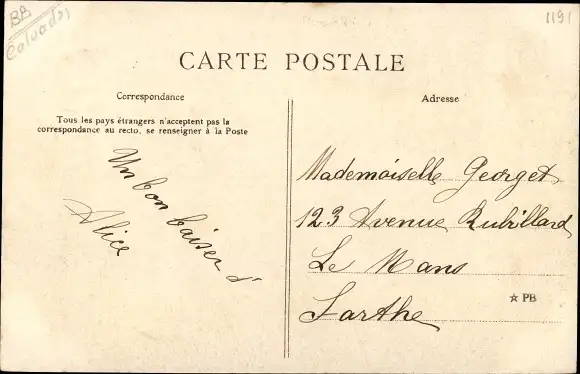 BB
Calvados
1191
CARTE POSTALE
Correspondance
Tous les pays étrangers n'acceptent pas la
correspondance au recto, se renseigner à la Poste
Un bon baiser d'
Alice
Adresse
Mademoiselle Georget
123 Avenue Rubillard
Le Mans
Sarthe
☆ PB